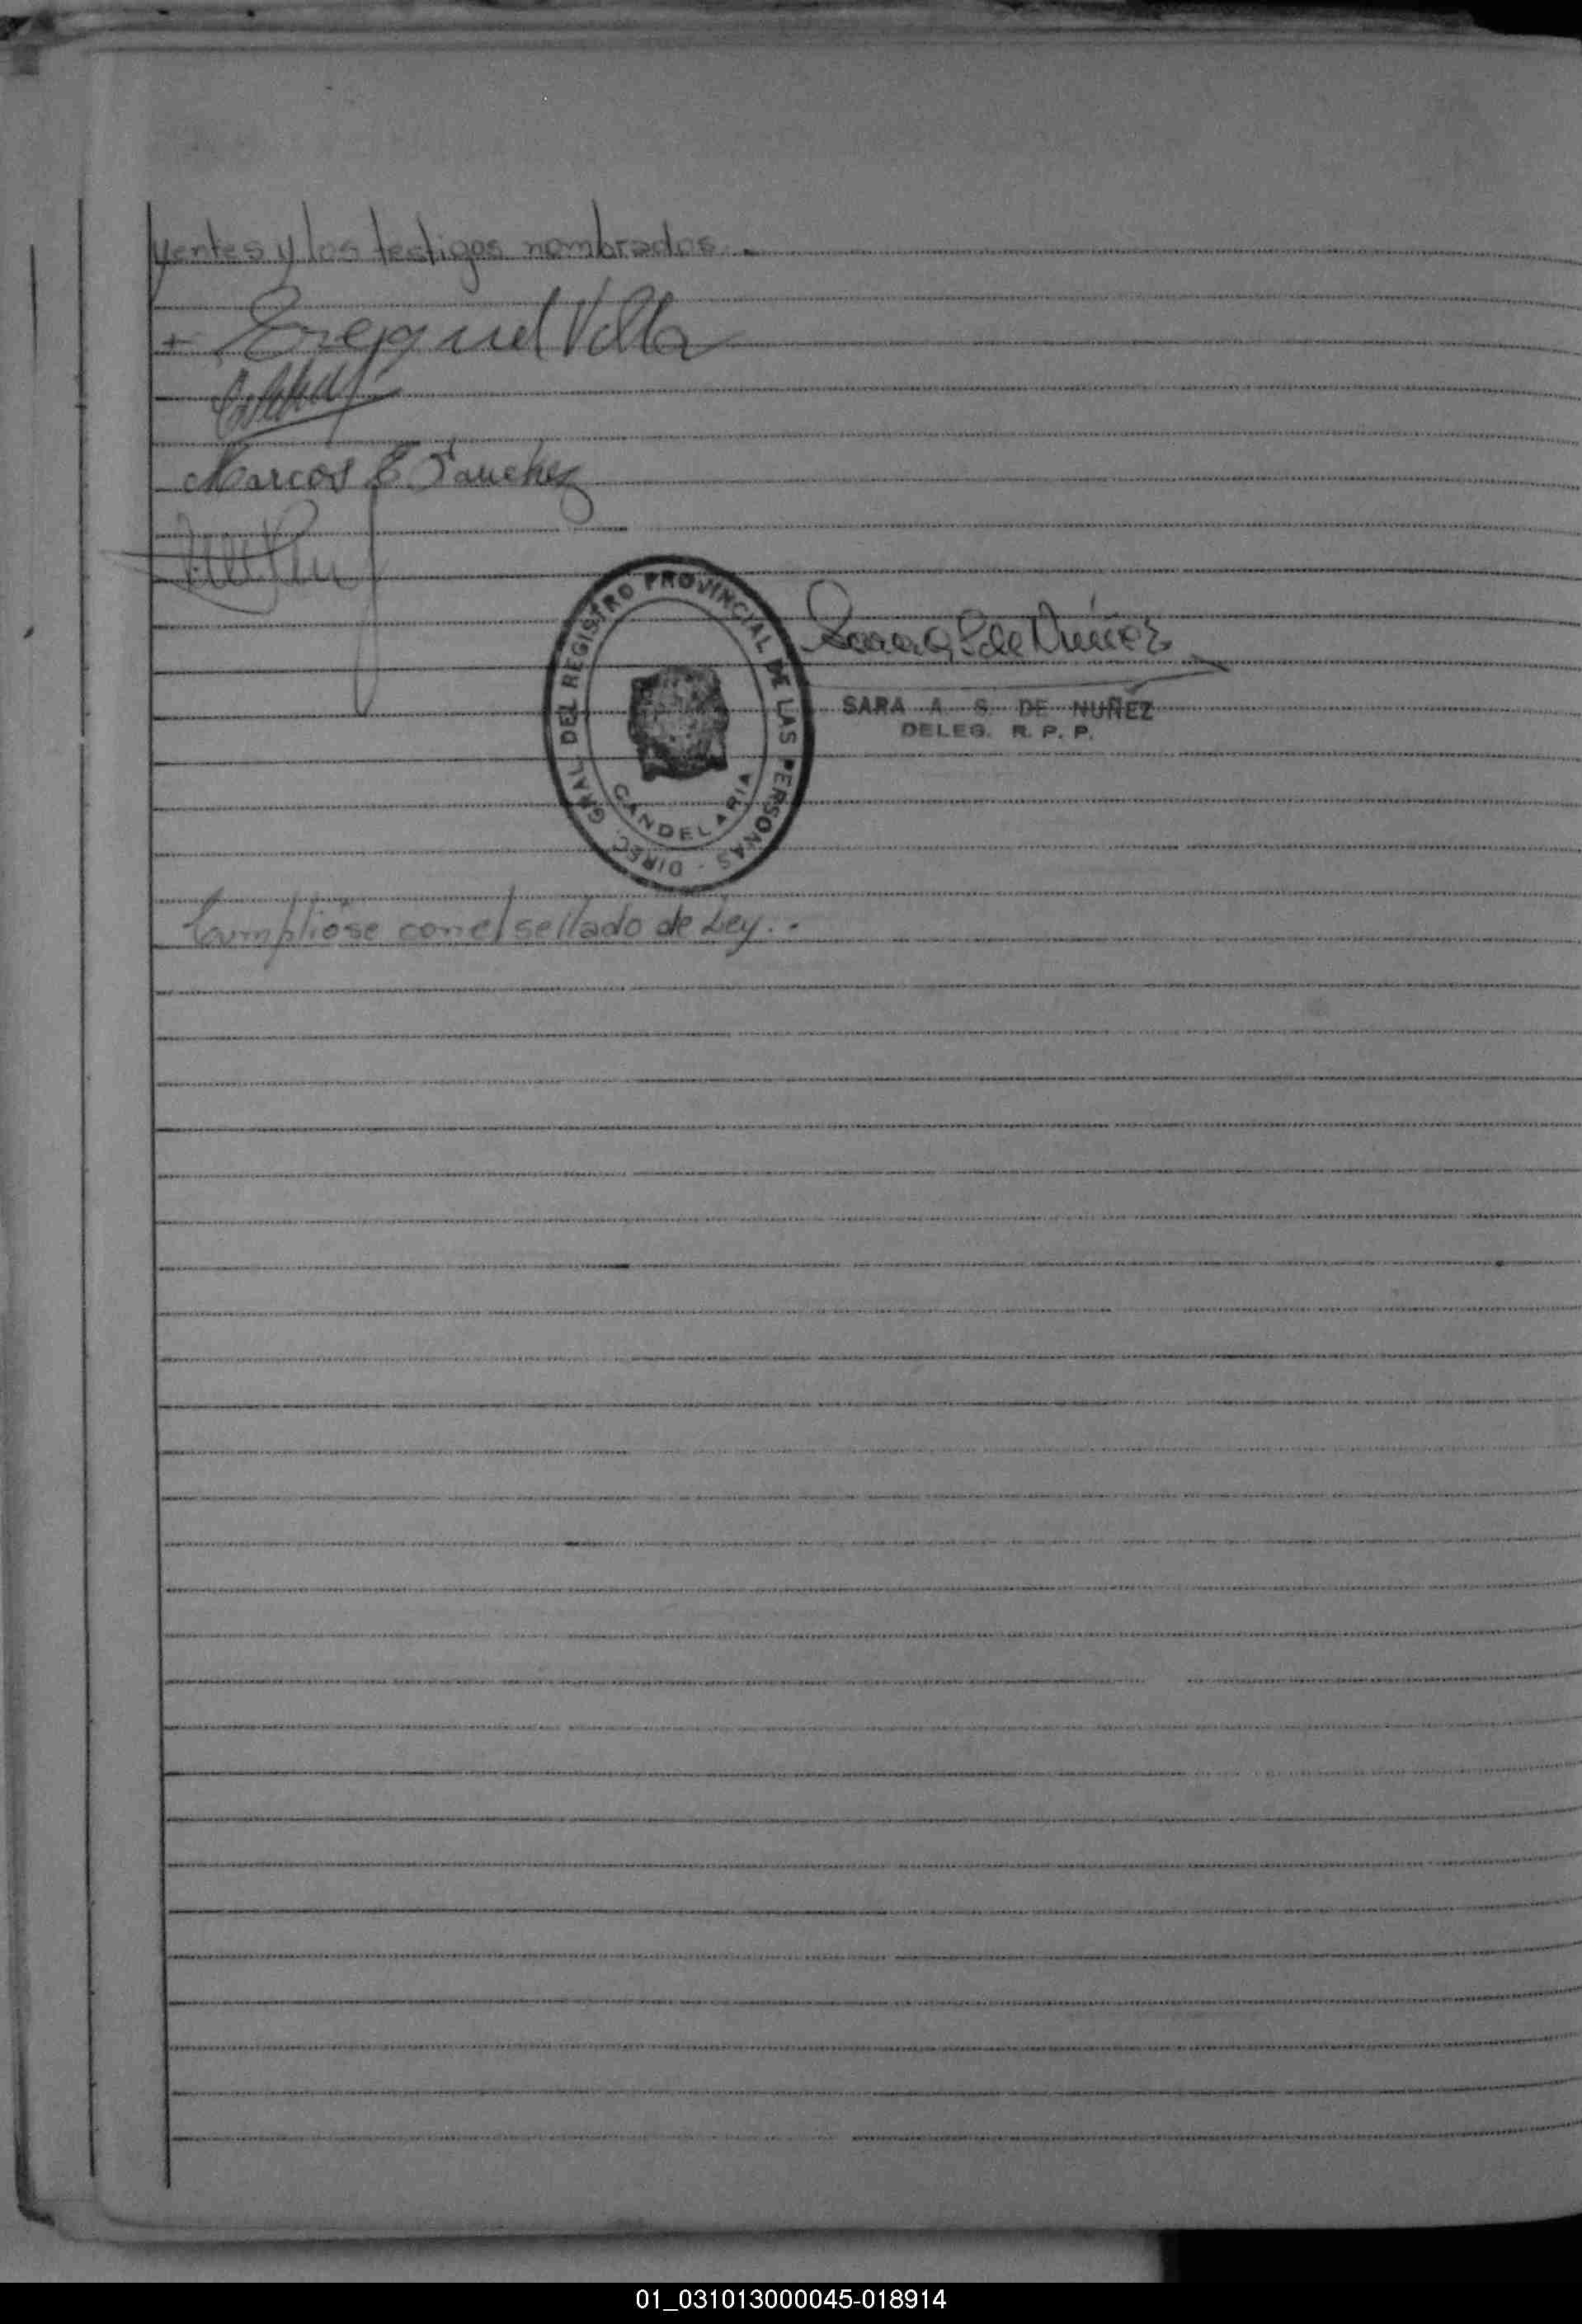 yentes y los testigos nombrados.-
+ Ezequiel Villa
Marcos E. Sanchez
DIREC. GRAL DEL REGISTRO PROVINCIAL DE LAS PERSONAS -
CANDELARIA
Sara A S de Nuñez
SARA A. S. DE NUÑEZ
DELEG. R. P. P.
Cumplióse con el sellado de Ley.-
01_031013000045-018914